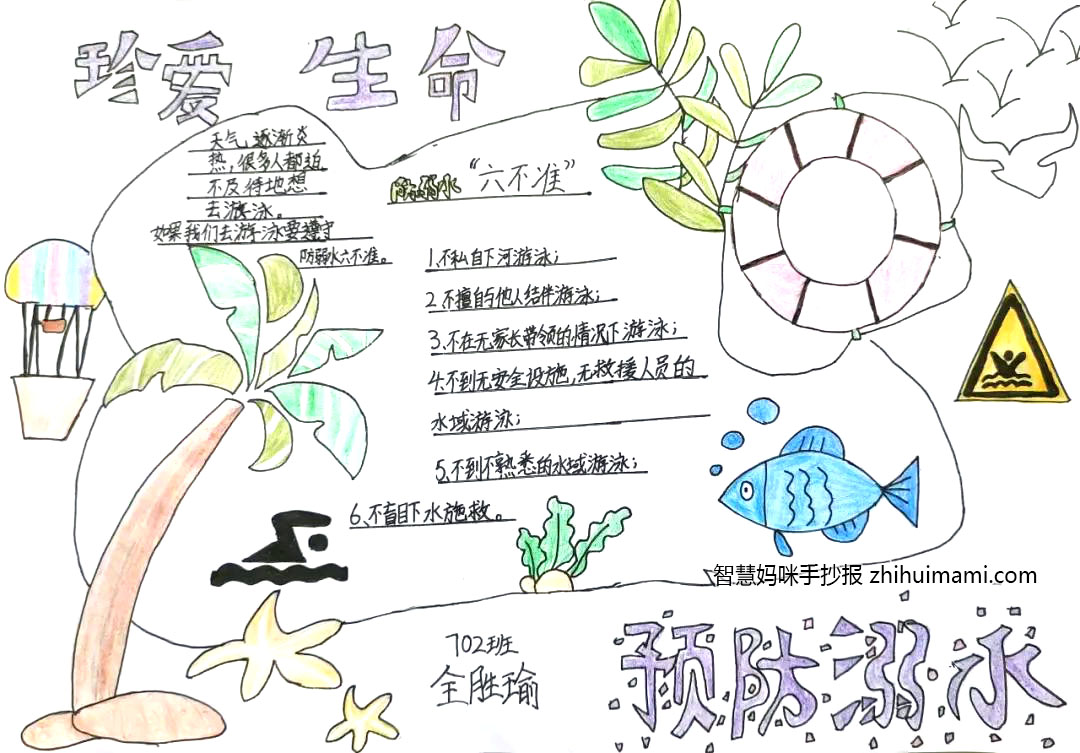 珍爱 生命
天气逐渐炎
热，很多人都迫
不及待地想
去游泳。
如果我们去游泳要遵守
防溺水六不准。
防溺水“六不准”
1、不私自下河游泳；
2、不擅自与他人结伴游泳；
3、不在无家长带领的情况下游泳；
4、不到无安全设施，无救援人员的
水域游泳；
5、不到不熟悉的水域游泳；
6、不盲目下水施救。
智慧妈咪手抄报 zhihuimami.com
702班
全胜瑜
预防溺水